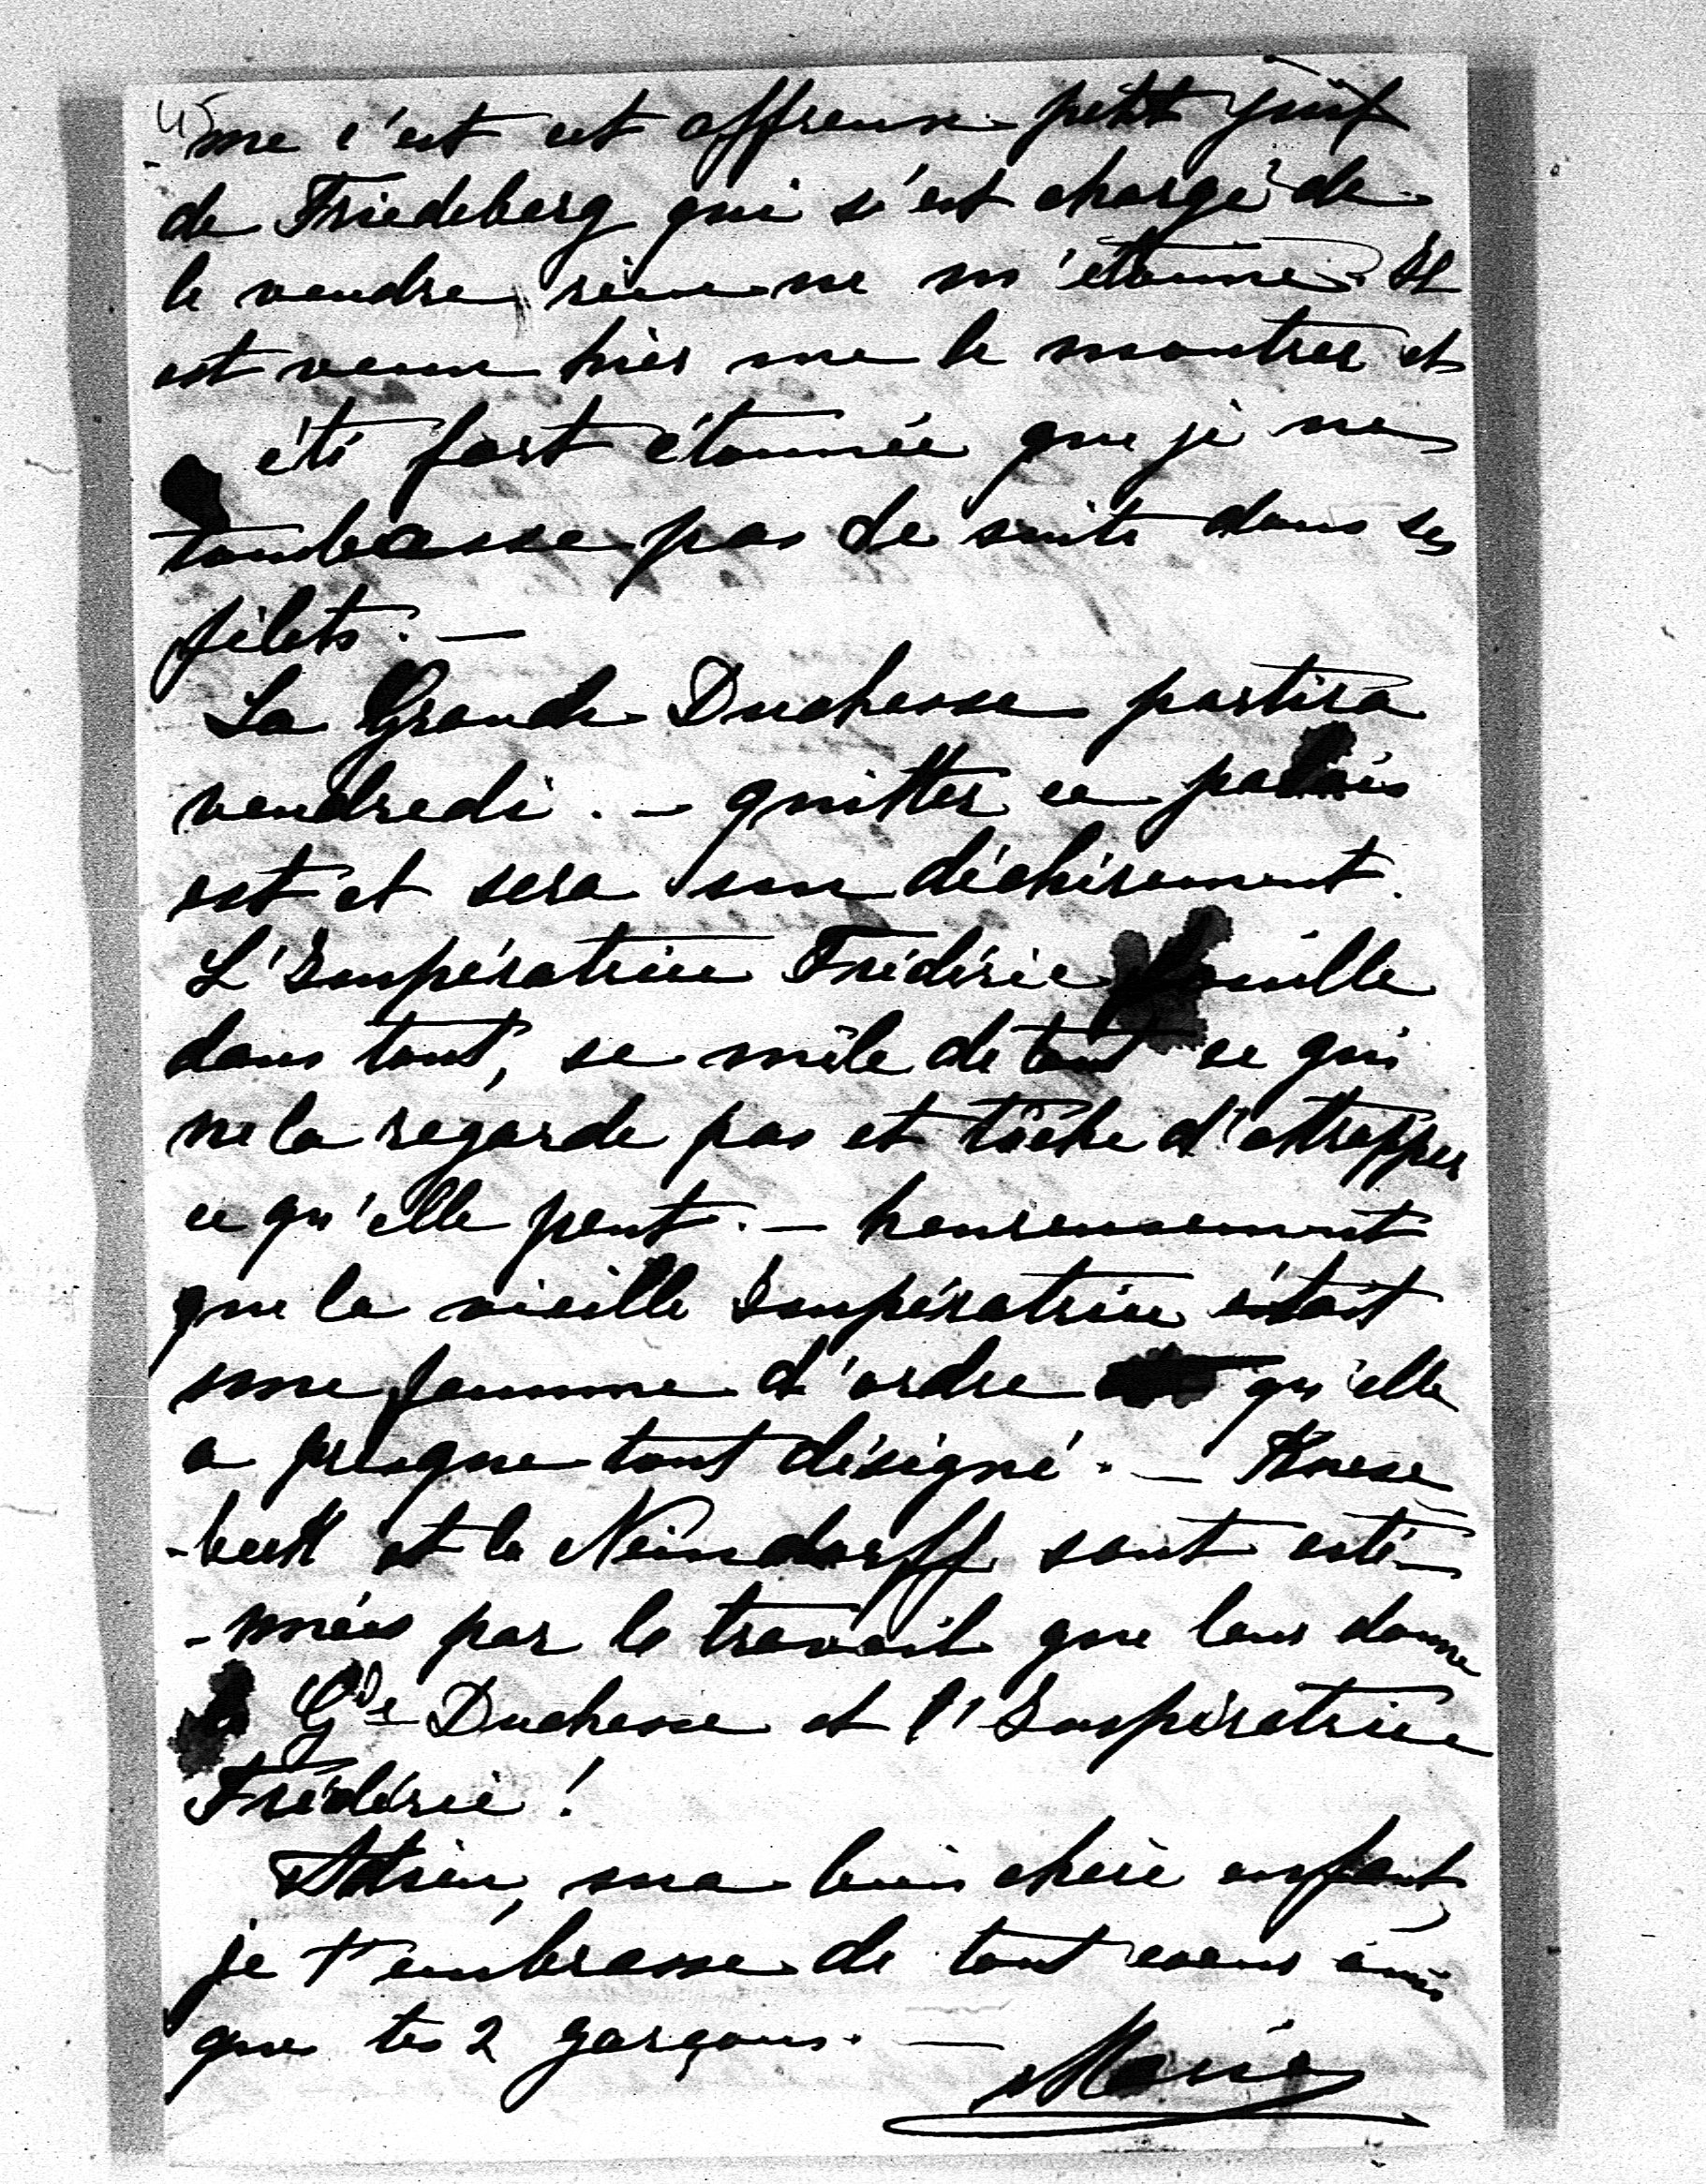 4)
-me c'est cet affreux petit juif
de Friedeberg qui s'est chargé de
le vendre, rien ne m'étonne. Il
est venu hier me le montrer et
été fort étonnée que je ne
tombasse pas de suite dans ses
filets. —
La Grande Duchesse partira
vendredi. — quitter ce palais
est et sera un déchirement.
L'Impératrice Frédéric fouille
dans tout, se mêle de tout ce qui
ne la regarde pas et tâche d'attrapper
ce qu'elle peut. — heureusement
que la vieille Impératrice était
une femme d'ordre qu'elle
a presque tout désigné. — Knese
-beck et la Neindorff sont exté-
-nués par le travail que leur donne
la Gde Duchesse et l'Impératrice
Frédéric!
Adieu, ma bien chère enfant,
je t'embrasse de tout coeur ainsi
que tes 2 garçons. —
Marie